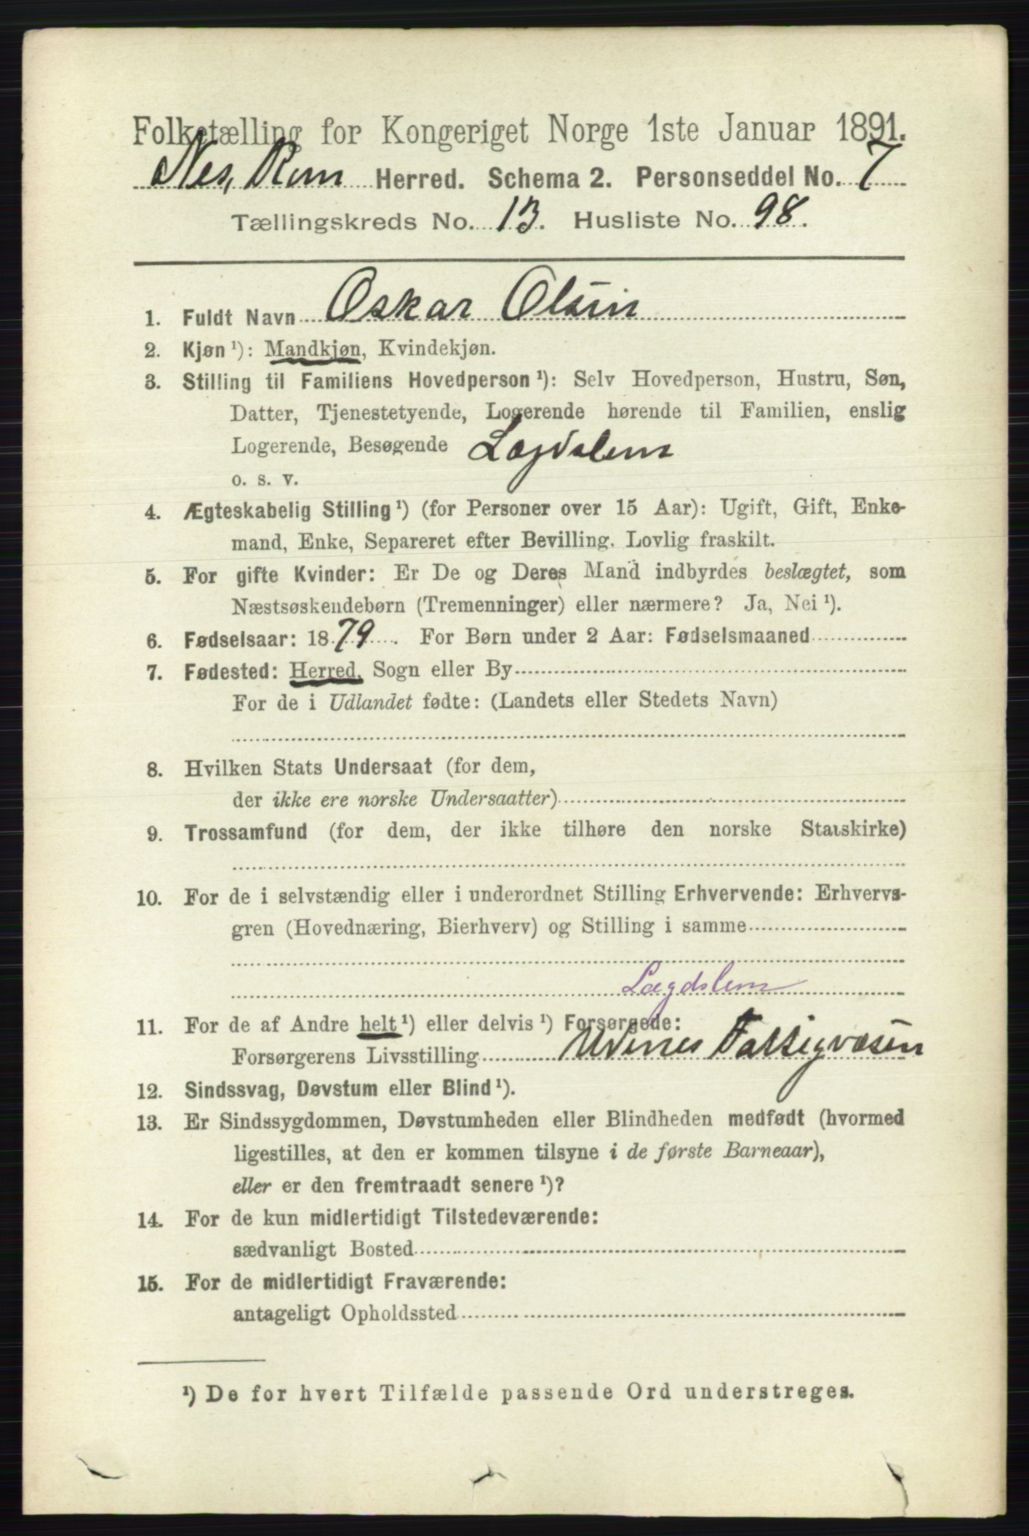 Folketælling for Kongeriget Norge 1ste Januar 1891.
Nes, Rom Herred. Schema 2. Personseddel No. 7
Tællingskreds No. 13. Husliste No. 98.
1. Fuldt Navn Oskar Olsen
2. Kjøn ¹): Mandkjøn, Kvindekjøn.
3. Stilling til Familiens Hovedperson ¹): Selv Hovedperson, Hustru, Søn,
Datter, Tjenestetyende, Logerende hørende til Familien, enslig
Logerende, Besøgende Lægdslem
o. s. v.
4. Ægteskabelig Stilling ¹) (for Personer over 15 Aar): Ugift, Gift, Enke-
mand, Enke, Separeret efter Bevilling. Lovlig fraskilt.
5. For gifte Kvinder: Er De og Deres Mand indbyrdes beslægtet, som
Næstsøskendebørn (Tremenninger) eller nærmere? Ja, Nei ¹).
6. Fødselsaar: 1879. For Børn under 2 Aar: Fødselsmaaned
7. Fødested: Herred, Sogn eller By
For de i Udlandet fødte: (Landets eller Stedets Navn)
8. Hvilken Stats Undersaat (for dem,
der ikke ere norske Undersaatter)
9. Trossamfund (for dem, der ikke tilhøre den norske Statskirke)
10. For de i selvstændig eller i underordnet Stilling Erhvervende: Erhvervs-
gren (Hovednæring, Bierhverv) og Stilling i samme
Lægdslem
11. For de af Andre helt ¹) eller delvis ¹) Forsørgede:
Forsørgerens Livsstilling Udenes Fattigvæsen
12. Sindssvag, Døvstum eller Blind ¹).
13. Er Sindssygdommen, Døvstumheden eller Blindheden medfødt (hvormed
ligestilles, at den er kommen tilsyne i de første Barneaar),
eller er den fremtraadt senere ¹)?
14. For de kun midlertidigt Tilstedeværende:
sædvanligt Bosted
15. For de midlertidigt Fraværende:
antageligt Opholdssted
¹) De for hvert Tilfælde passende Ord understreges.